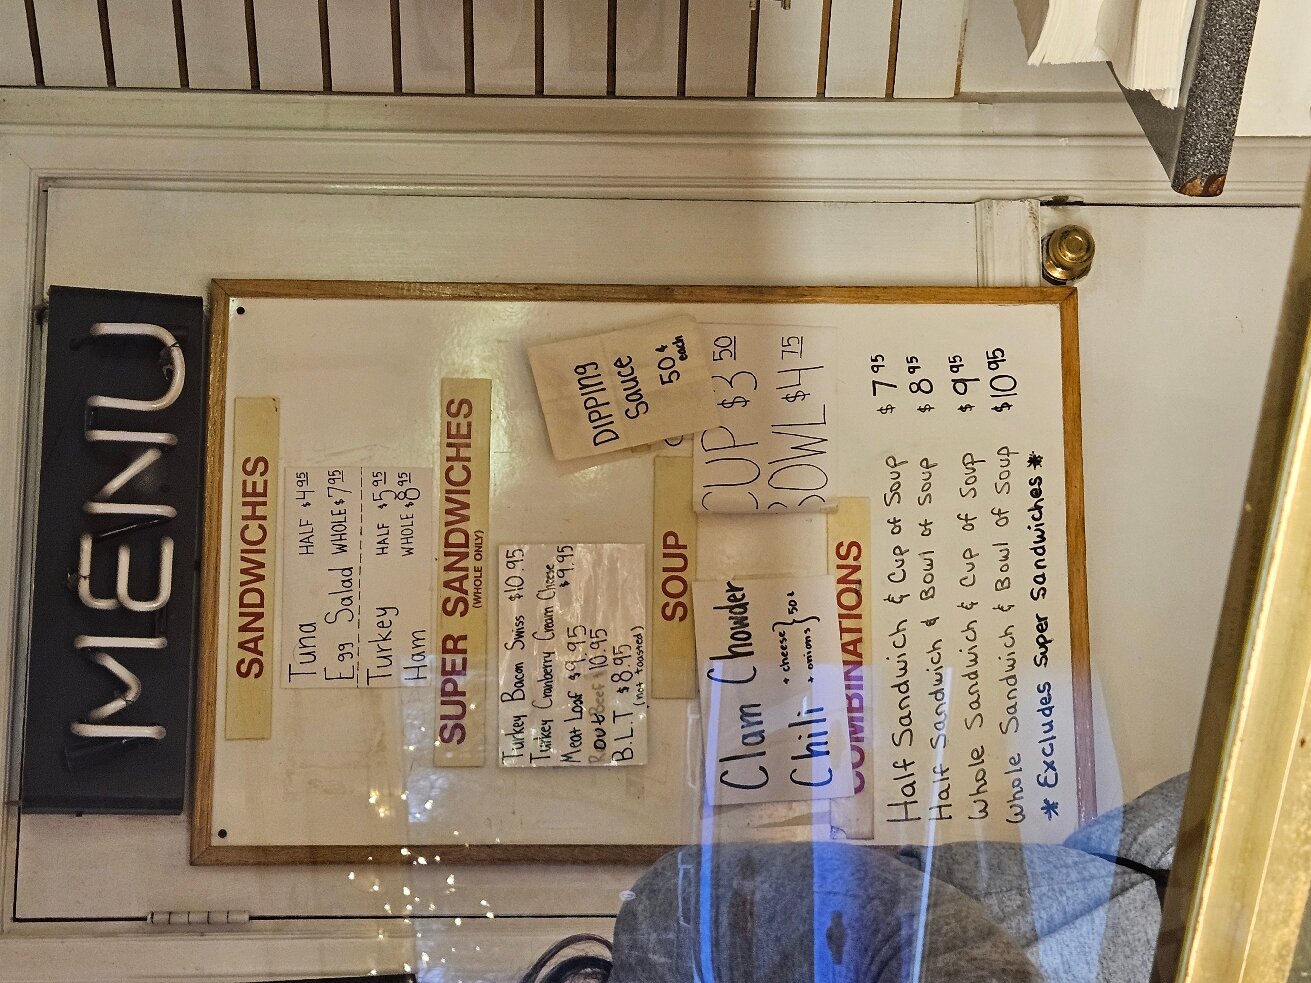 MENU
SANDWICHES
Tuna HALF $4.95
Egg Salad WHOLE $7.95
Turkey HALF $5.95
Ham WHOLE $8.95
SUPER SANDWICHES
(WHOLE ONLY)
Turkey Bacon Swiss $10.95
Turkey Cranberry Cream Cheese $9.95
Meat Loaf $9.95
Beef $10.95
B.L.T $8.95
(not toasted)
DIPPING
Sauce
50¢
each
SOUP
CUP $3.50
BOWL $4.75
Clam Chowder
Chili + cheese } 50¢
+ onions
COMBINATIONS
Half Sandwich & Cup of Soup $7.95
Half Sandwich & Bowl of Soup $8.95
Whole Sandwich & Cup of Soup $9.95
Whole Sandwich & Bowl of Soup $10.95
* Excludes Super Sandwiches *